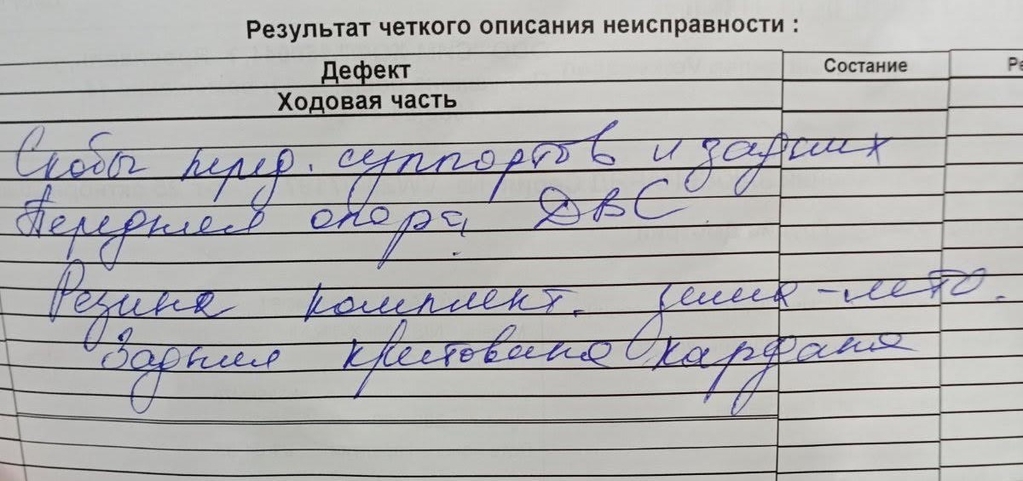 Результат четкого описания неисправности :
Дефект
Состание
Ре
Ходовая часть
Скобы перед. суппортов и задних
Передняя опора ДВС
Резина комплект. зима-лето.
Задняя крестовина кардана